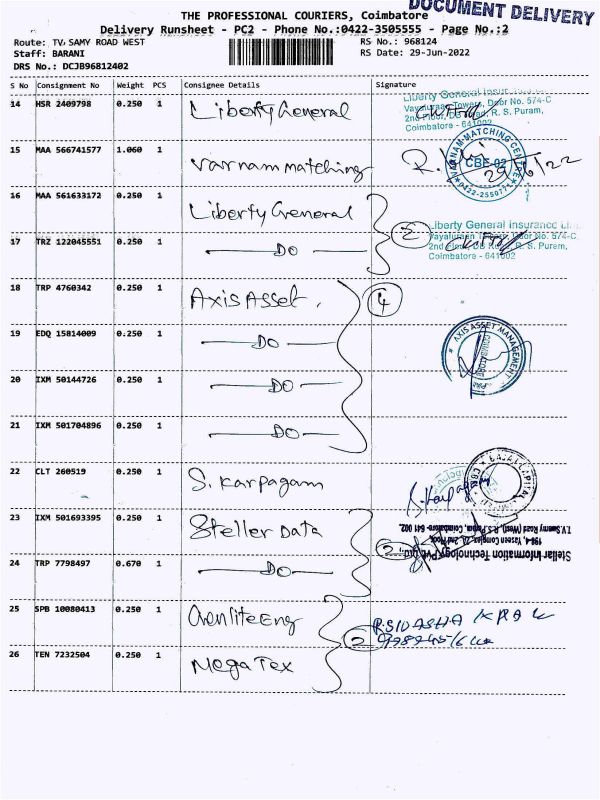 THE PROFESSIONAL COURIERS, Coimbatore
DOCUMENT DELIVERY
Delivery Runsheet - PC2 - Phone No.:0422-3505555 - Page No.:2
Route: TV SAMY ROAD WEST
RS No.: 968124
Staff: BARANI
RS Date: 29-Jun-2022
DRS No.: DCJB96812402
S No Consignment No Weight PCS Consignee Details Signature
14 HSR 2409798 0.250 1 Liberty General
Liberty General Insurance
Vayaturaan Towers, Door No. 574-C
2nd Floor, DB Road, R. S. Puram,
Coimbatore - 641002
15 MAA 566741577 1.060 1 Varnam matching
VARNAM MATCHING CENTRE
CBE-02
0422-2550771
29/6/22
16 MAA 561633172 0.250 1 Liberty General
17 TRZ 122045551 0.250 1 DO
2
Liberty General Insurance
Door No. 574-C
2nd Floor, DB Road, R. S. Puram,
Coimbatore - 641002
18 TRP 4760342 0.250 1 Axis Asset
4
19 EDQ 15814009 0.250 1 DO
AXIS ASSET MANAGEMENT
COIMBATORE
20 IXM 50144726 0.250 1 DO
21 IXM 501704896 0.250 1 DO
22 CLT 260519 0.250 1 S. Karpagam
S. Karpagam
BAJAJ CAPITAL
23 IXM 501693395 0.250 1 Steller Data
T.V.Swamy Road (West), R.S.Puram, Coimbatore - 641 002.
2nd Floor,
Stellar Information Technology Pvt. Ltd.,
2
24 TRP 7798497 0.670 1 DO
25 SPB 10080413 0.250 1
2
26 TEN 7232504 0.250 1 Mega Tex